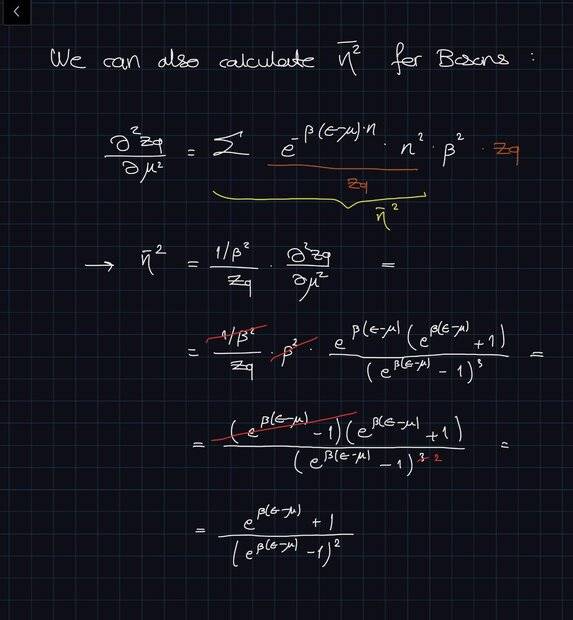 We can also calculate n̄² fer Bosons :
∂²Zq/∂μ² = Σ e^(-β(ϵ-μ)·n)/Zq · n² · β² · Zq
n̄²
→ n̄² = (1/β²)/Zq · ∂²Zq/∂μ² =
= (1/β²)/Zq · β² · e^(β(ϵ-μ)) (e^(β(ϵ-μ)) + 1) / (e^(β(ϵ-μ)) - 1)³ =
= (e^(β(ϵ-μ)) - 1)(e^(β(ϵ-μ)) + 1) / (e^(β(ϵ-μ)) - 1)^(3 2) =
= (e^(β(ϵ-μ)) + 1) / (e^(β(ϵ-μ)) - 1)²